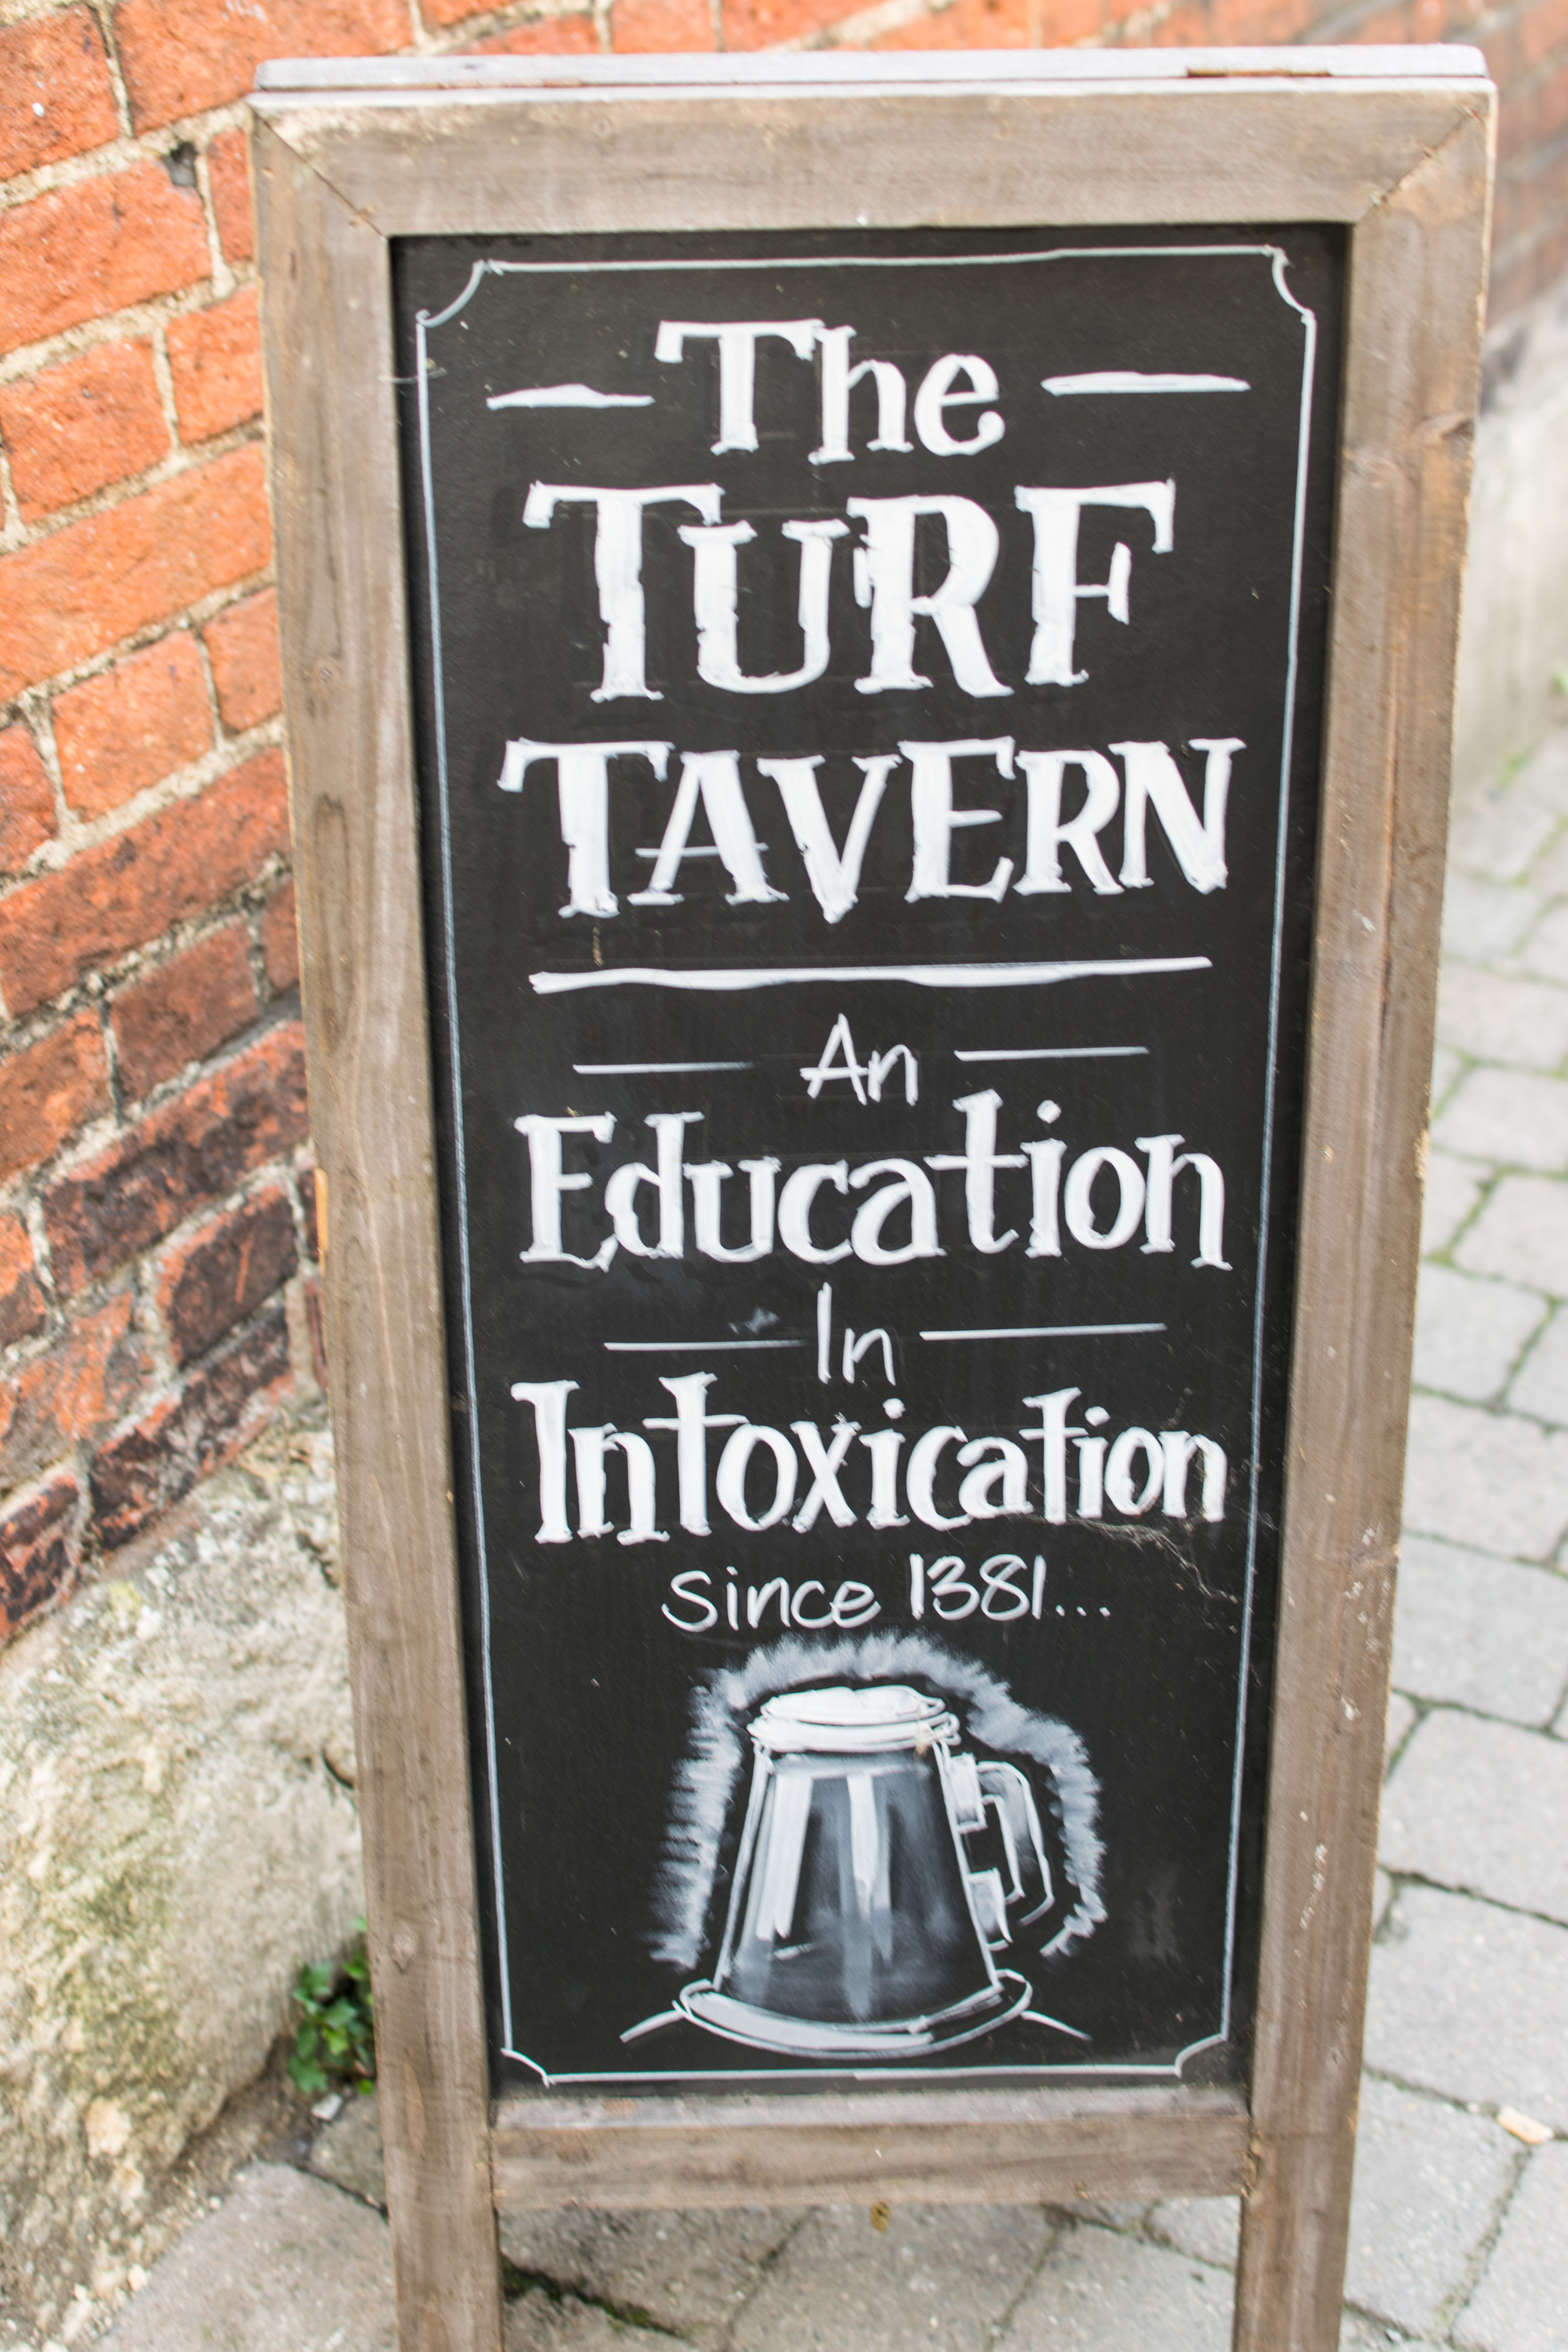 The
TURF
TAVERN
An
Education
In
Intoxication
Since 1381...